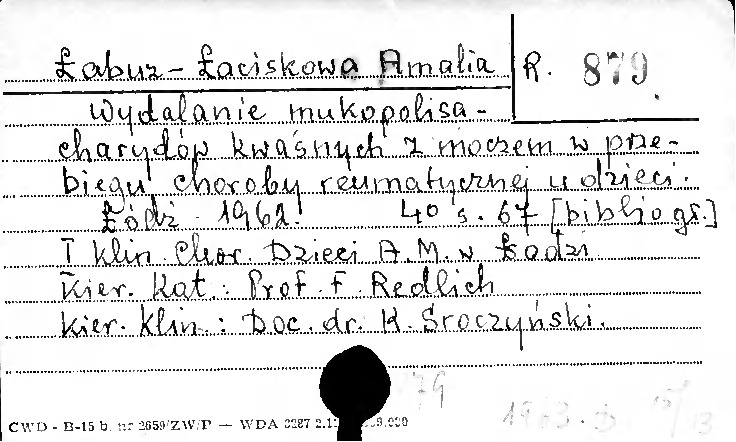 Łabuz-Łaciskowa Amalia
R. 879
Wydalanie mukopolisa-
charydów kwaśnych z moczem w prze-
biegu choroby reumatycznej u dzieci.
Łódź 1962. 40 s. 67 [bibliogr.]
I Klin. Chor. Dzieci A.M. w Łodzi
Kier. Kat.: Prof. F. Redlich
Kier. Klin.: Doc. dr. H. Sroczyński.
79
CWD - B-15 b. nr 2659/ZW/P — WDA 3287
1963.